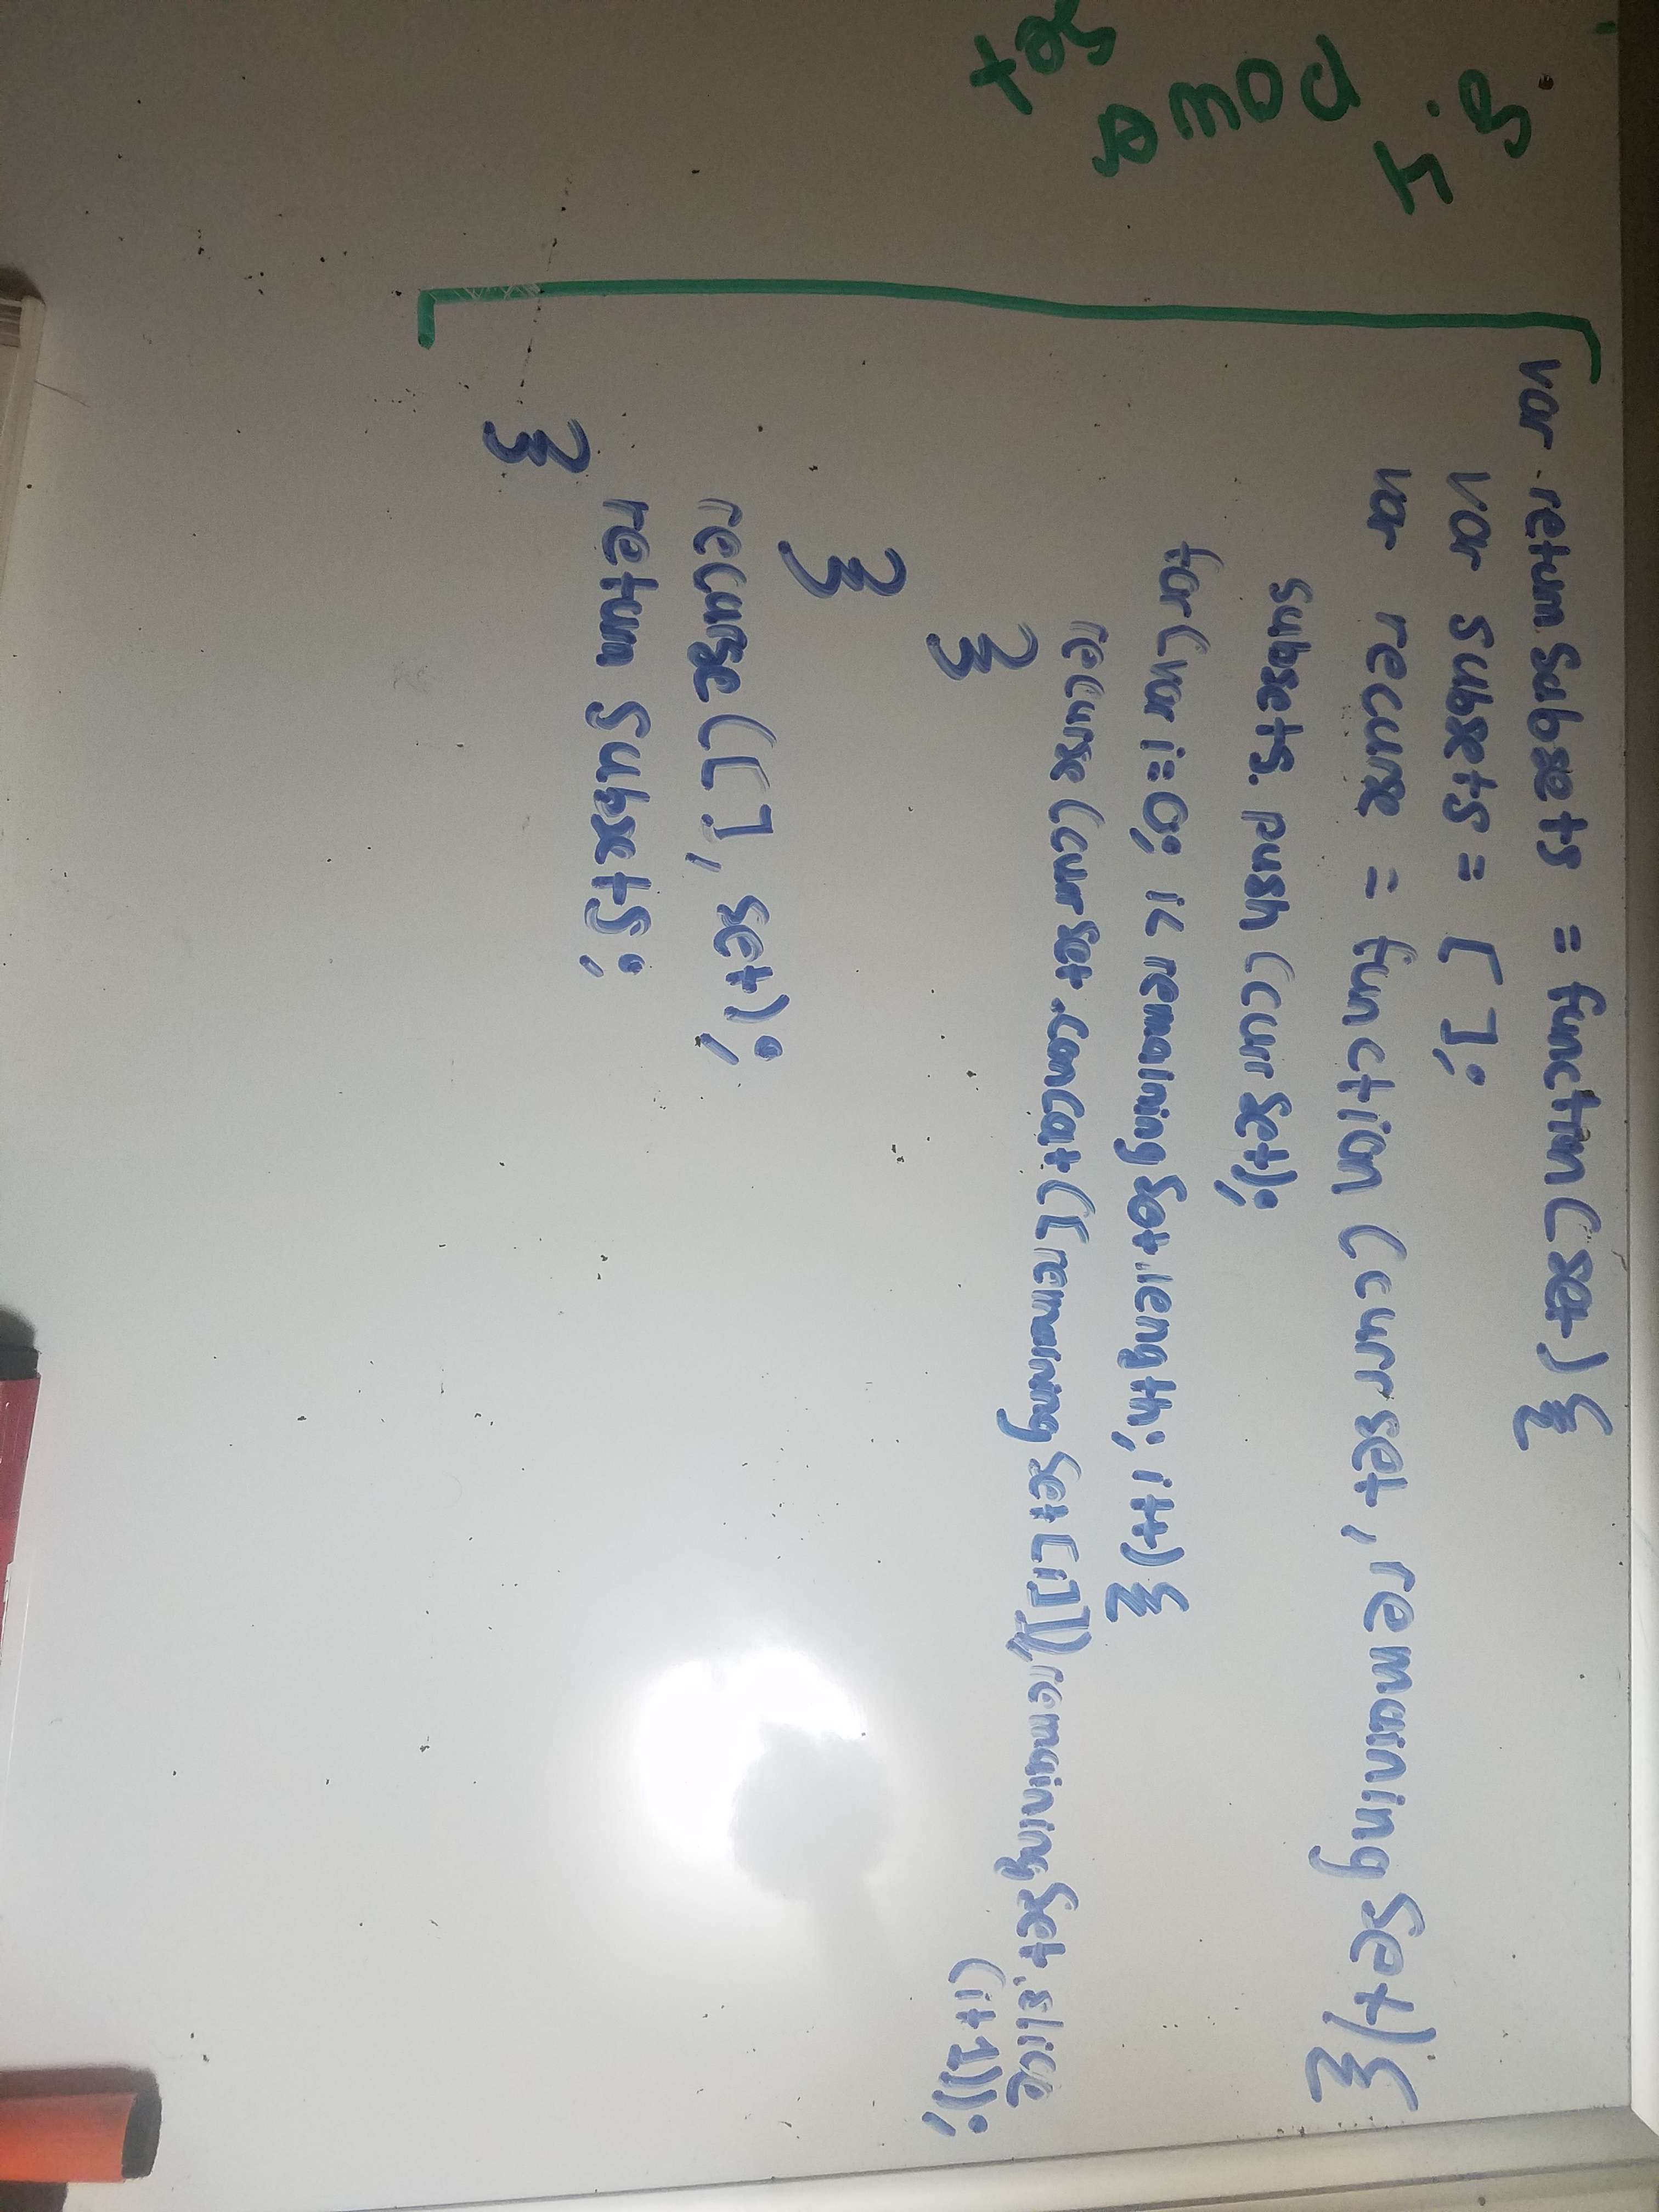 5.4
power
set
var returnSubsets = function(set){
var subsets = [ ];
var recurse = function(currset, remainingSet){
subsets.push(currSet);
for(var i=0; i< remainingSet.length; i++){
recurse(currSet.concat([remainingSet[i]]), remainingSet.slice
(i+1));
}
}
recurse([], set);
return subsets;
}